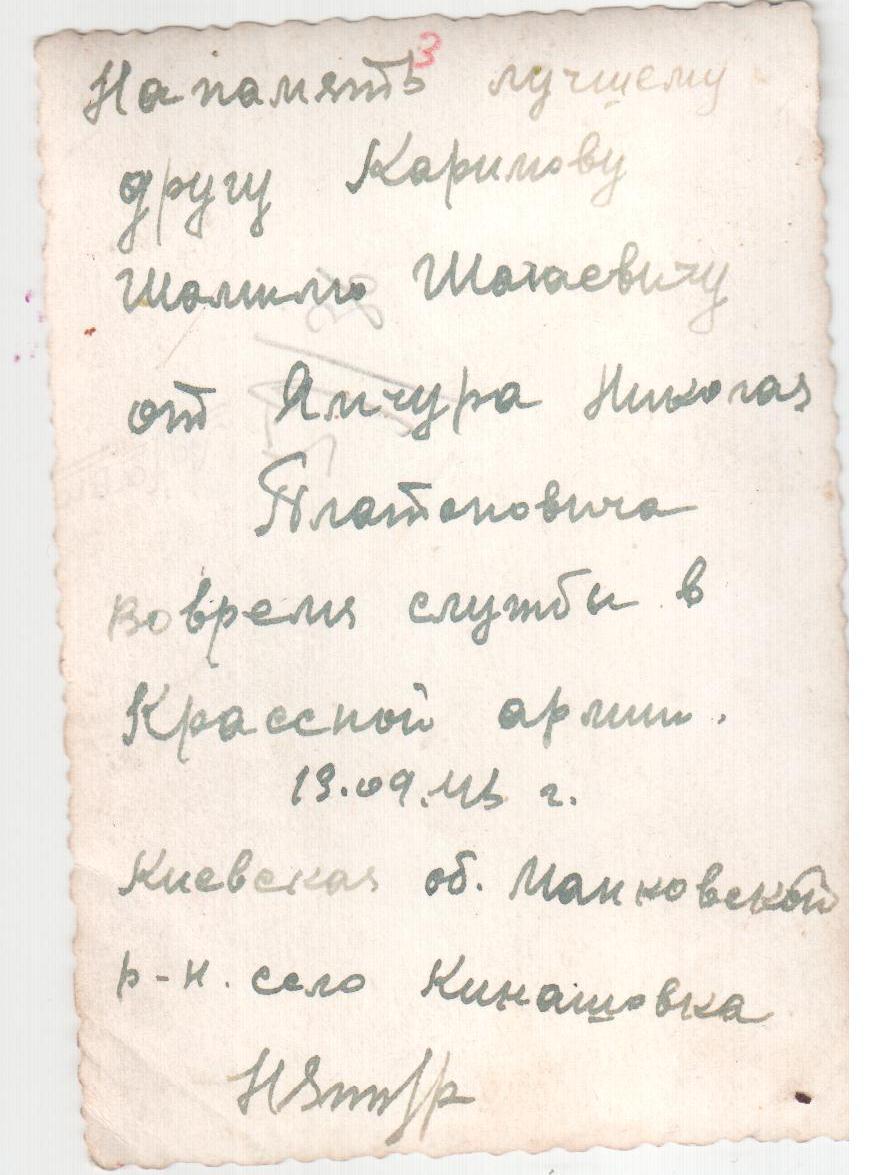 3
На память лучшему
другу Каримову
Шамилю Шагаевичу
от Ямчура Николая
Платоновича
Во время службы в
Крассной армии.
г.
Киевская об. Манковской
р-н. село Кинашовка